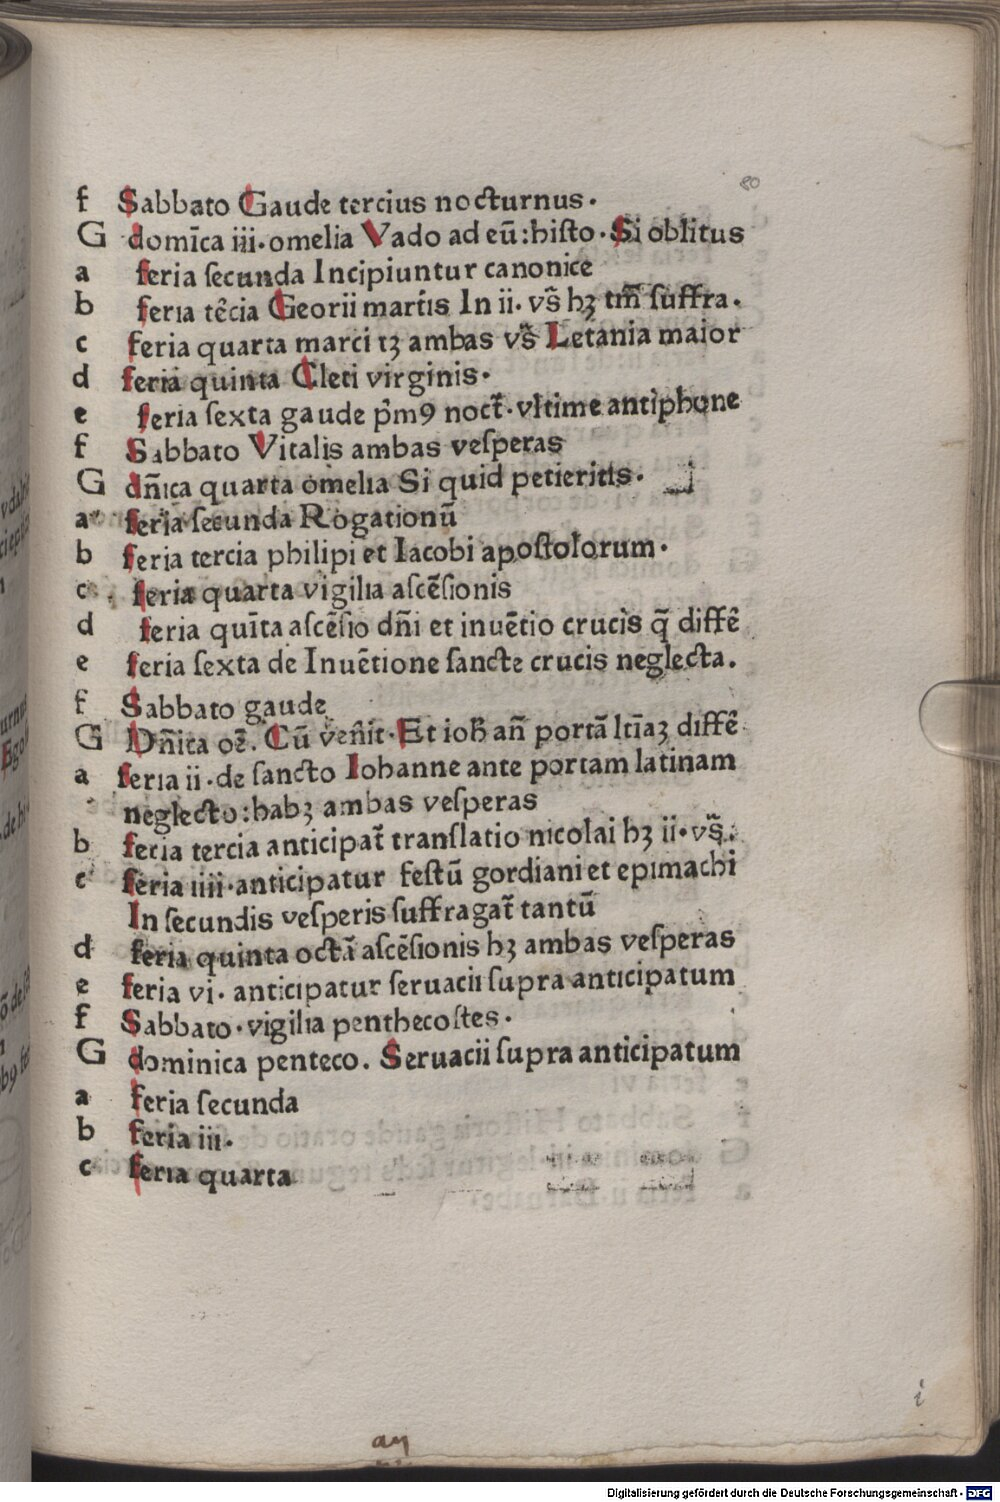 80
f Sabbato Gaude tercius nocturnus.
G domīca iii. omelia Vado ad eū: histo. Si oblitus
a feria secunda Incipiuntur canonice
b feria tēcia Georii martis In ii. vs̄ hꝫ tm̄ suffra.
c feria quarta marci ꝛꝫ ambas vs̄ Letania maior
d feria quinta Cleti virginis.
e feria sexta gaude pm9 noct̄. vltime antiphone
f Sabbato Vitalis ambas vesperas
G dn̄ica quarta omelia Si quid petieritis.
a feria secunda Rogationū
b feria tercia philipi et Iacobi apostolorum.
c feria quarta vigilia ascēsionis
d feria quīta ascēsio dn̄i et inuētio crucis q̄ diffē
e feria sexta de Inuētione sancte crucis neglecta.
f Sabbato gaude
G Dn̄ica oē. Cū ven̄it. Et ioh̄ an̄ portā ltīaꝫ diffē
a feria ii. de sancto Iohanne ante portam latinam
neglecto: habꝫ ambas vesperas
b feria tercia anticipat̄ translatio nicolai hꝫ ii. vs̄.
c feria iiii. anticipatur festū gordiani et epimachi
In secundis vesperis suffragat̄ tantū
d feria quinta octā ascēsionis hꝫ ambas vesperas
e feria vi. anticipatur seruacii supra anticipatum
f Sabbato. vigilia penthecostes.
G dominica penteco. Seruacii supra anticipatum
a feria secunda
b feria iii.
c feria quarta
i
Digitalisierung gefördert durch die Deutsche Forschungsgemeinschaft - DFG